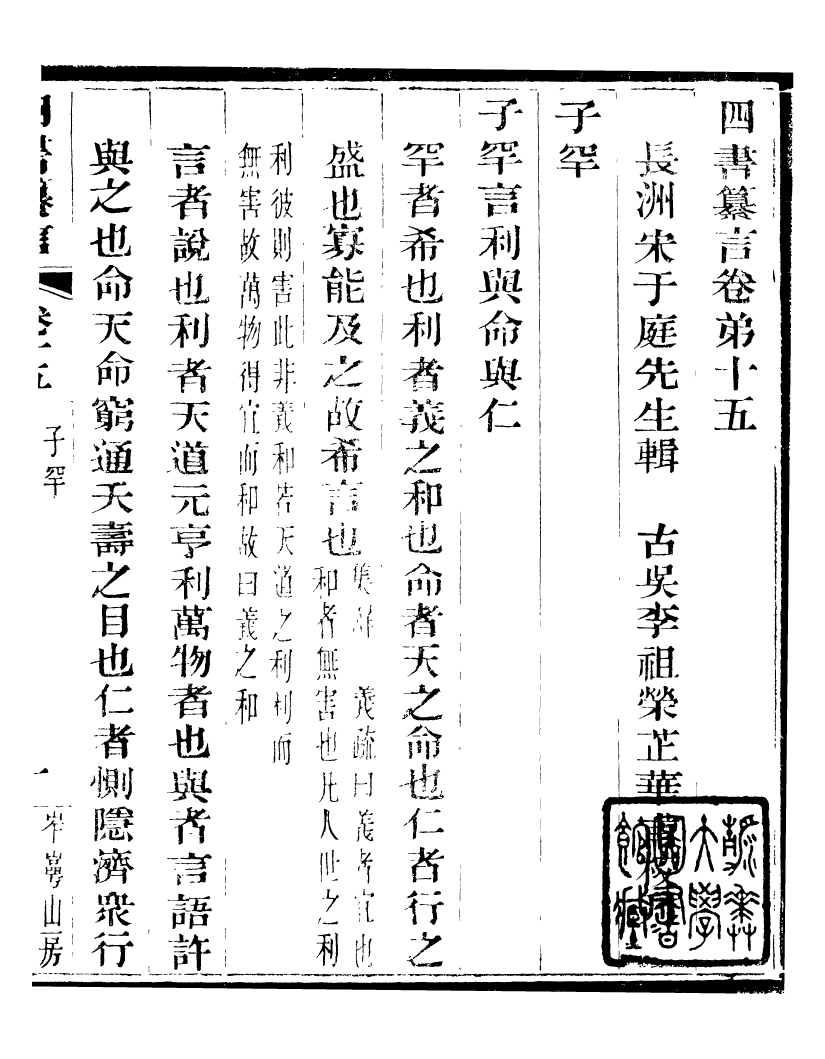 四書纂言卷弟十五
長洲宋于庭先生輯　古吳李祖榮芷華
子罕
子罕言利與命與仁
罕者希也利者義之和也命者天之命也仁者行之
盛也寡能及之故希言也集解　義疏曰義者宜也
和者無害也凡人世之利
利彼則害此非義和若天道之利利而
無害故萬物得宜而和故曰義之和
言者說也利者天道元亨利萬物者也與者言語許
與之也命天命窮通夭壽之目也仁者惻隱濟衆行
四書纂言　卷十五　子罕　一　岝崿山房